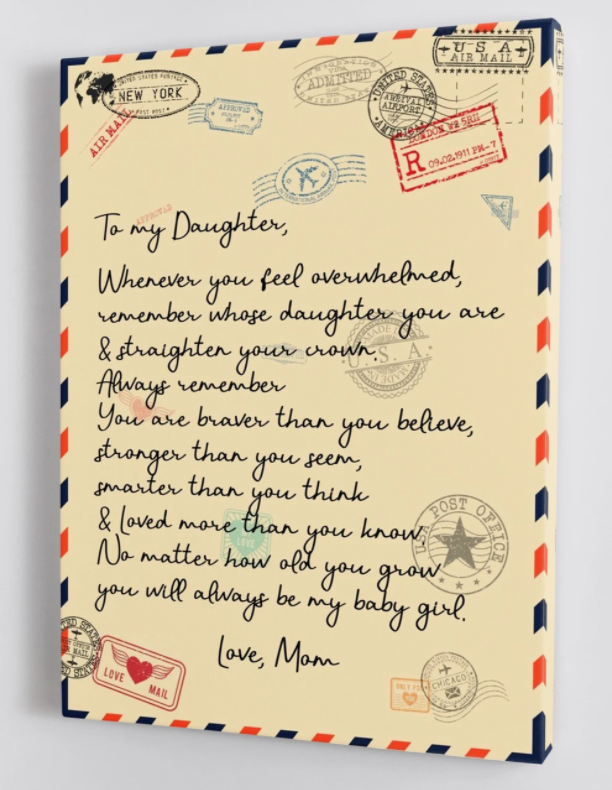 U S A
AIR MAIL
UNITED STATES POSTAGE
NEW YORK
AIR MAIL
APPROVED
ADMITTED
UNITED STATES
ARRIVAL
AIRPORT
AMERICA
LONDON W2 5RH
R 09.02.1911 PM-7
APPROVED
To my Daughter,
Whenever you feel overwhelmed,
remember whose daughter you are
& straighten your crown.
MADE IN
U.S.A.
MADE IN
Always remember
You are braver than you believe,
stronger than you seem,
smarter than you think
& Loved more than you know
LOVE
USA POST OFFICE
No matter how old you grow
you will always be my baby girl.
Love, Mom
LOVE MAIL
CHICAGO